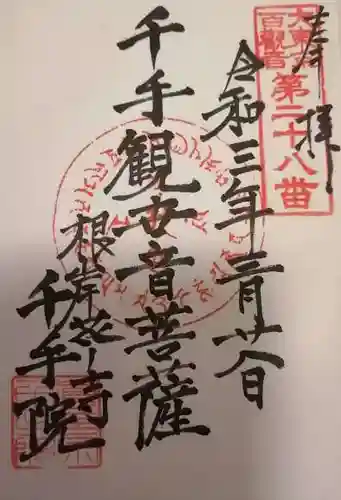 奉拝
大東京
百觀音
第二十八番
令和三年三月廿八日
千手観世音菩薩
根岸花ノ寺
千手院